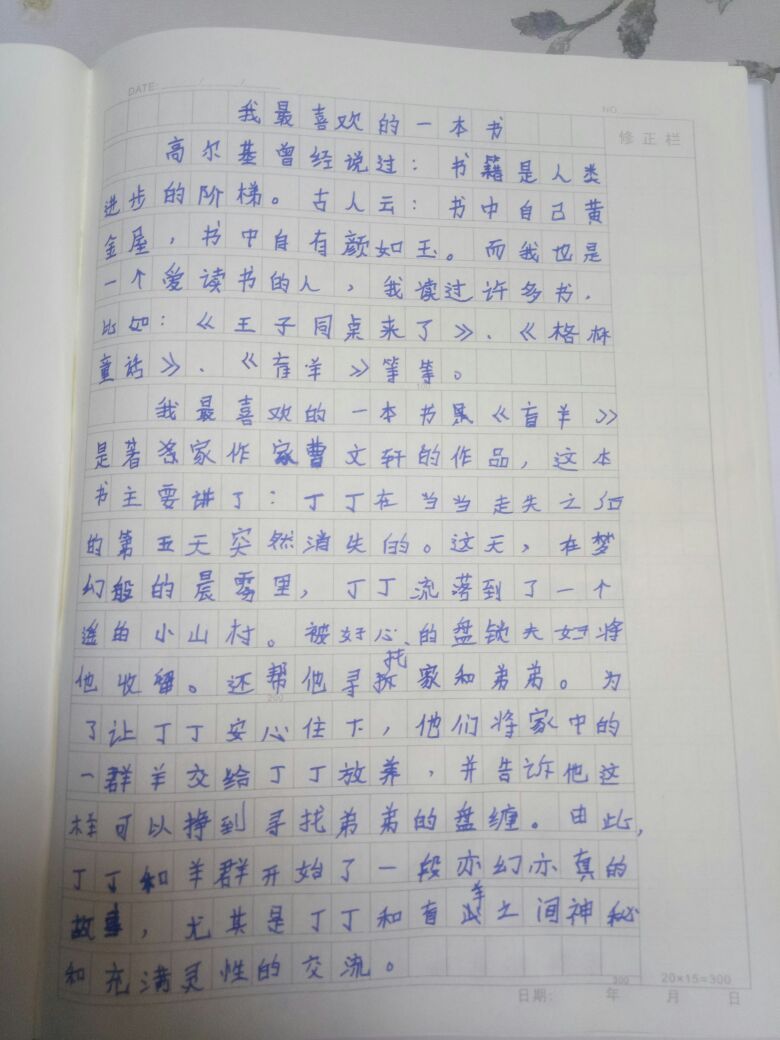 DATE: / /
NO.
修正栏
我最喜欢的一本书
高尔基曾经说过：书籍是人类
进步的阶梯。古人云：书中自己黄
金屋，书中自有颜如玉。而我也是
一个爱读书的人，我读过许多书，
比如：《王子同桌来了》、《格林
童话》、《盲羊》等等。
100
我最喜欢的一本书是《盲羊》
是著名家作家曹文轩的作品，这本
书主要讲了：丁丁在当当走失之后
的第五天突然消失的。这天，在梦
幻般的晨雾里，丁丁流落到了一个
遥的小山村。被好心的盘锁夫妇将
他收留。还帮他寻找家和弟弟。为
200
了让丁丁安心住下，他们将家中的
一群羊交给丁丁放养，并告诉他这
样可以挣到寻找弟弟的盘缠。由此，
丁丁和羊群开始了一段亦幻亦真的
故事，尤其是丁丁和盲羊之间神秘
和充满灵性的交流。
300 20×15=300
日期： 年 月 日